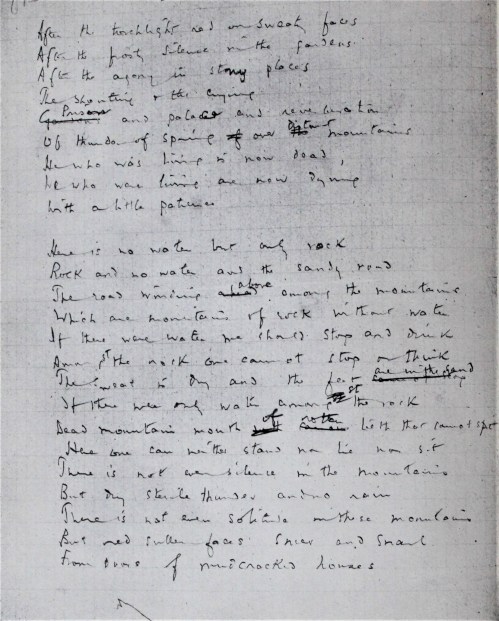 After the torchlight red on sweaty faces
After the frosty silence in the gardens
After the agony in stony places
The shouting & the crying
Prison and palace and reverberation
Of thunder of spring over distant mountains
He who was living is now dead,
We who were living are now dying
With a little patience
Here is no water but only rock
Rock and no water and the sandy road
The road winding above among the mountains
Which are mountains of rock without water
If there were water we should stop and drink
Amongst the rock one cannot stop or think
The sweat is dry and the feet are in the sand
If there were only water amongst the rock
Dead mountain mouth of rotten teeth that cannot spit
Here one can neither stand nor lie nor sit
There is not even silence in the mountains
But dry sterile thunder and no rain
There is not even solitude in these mountains
But red sullen faces sneer and snarl
From doors of mudcracked houses